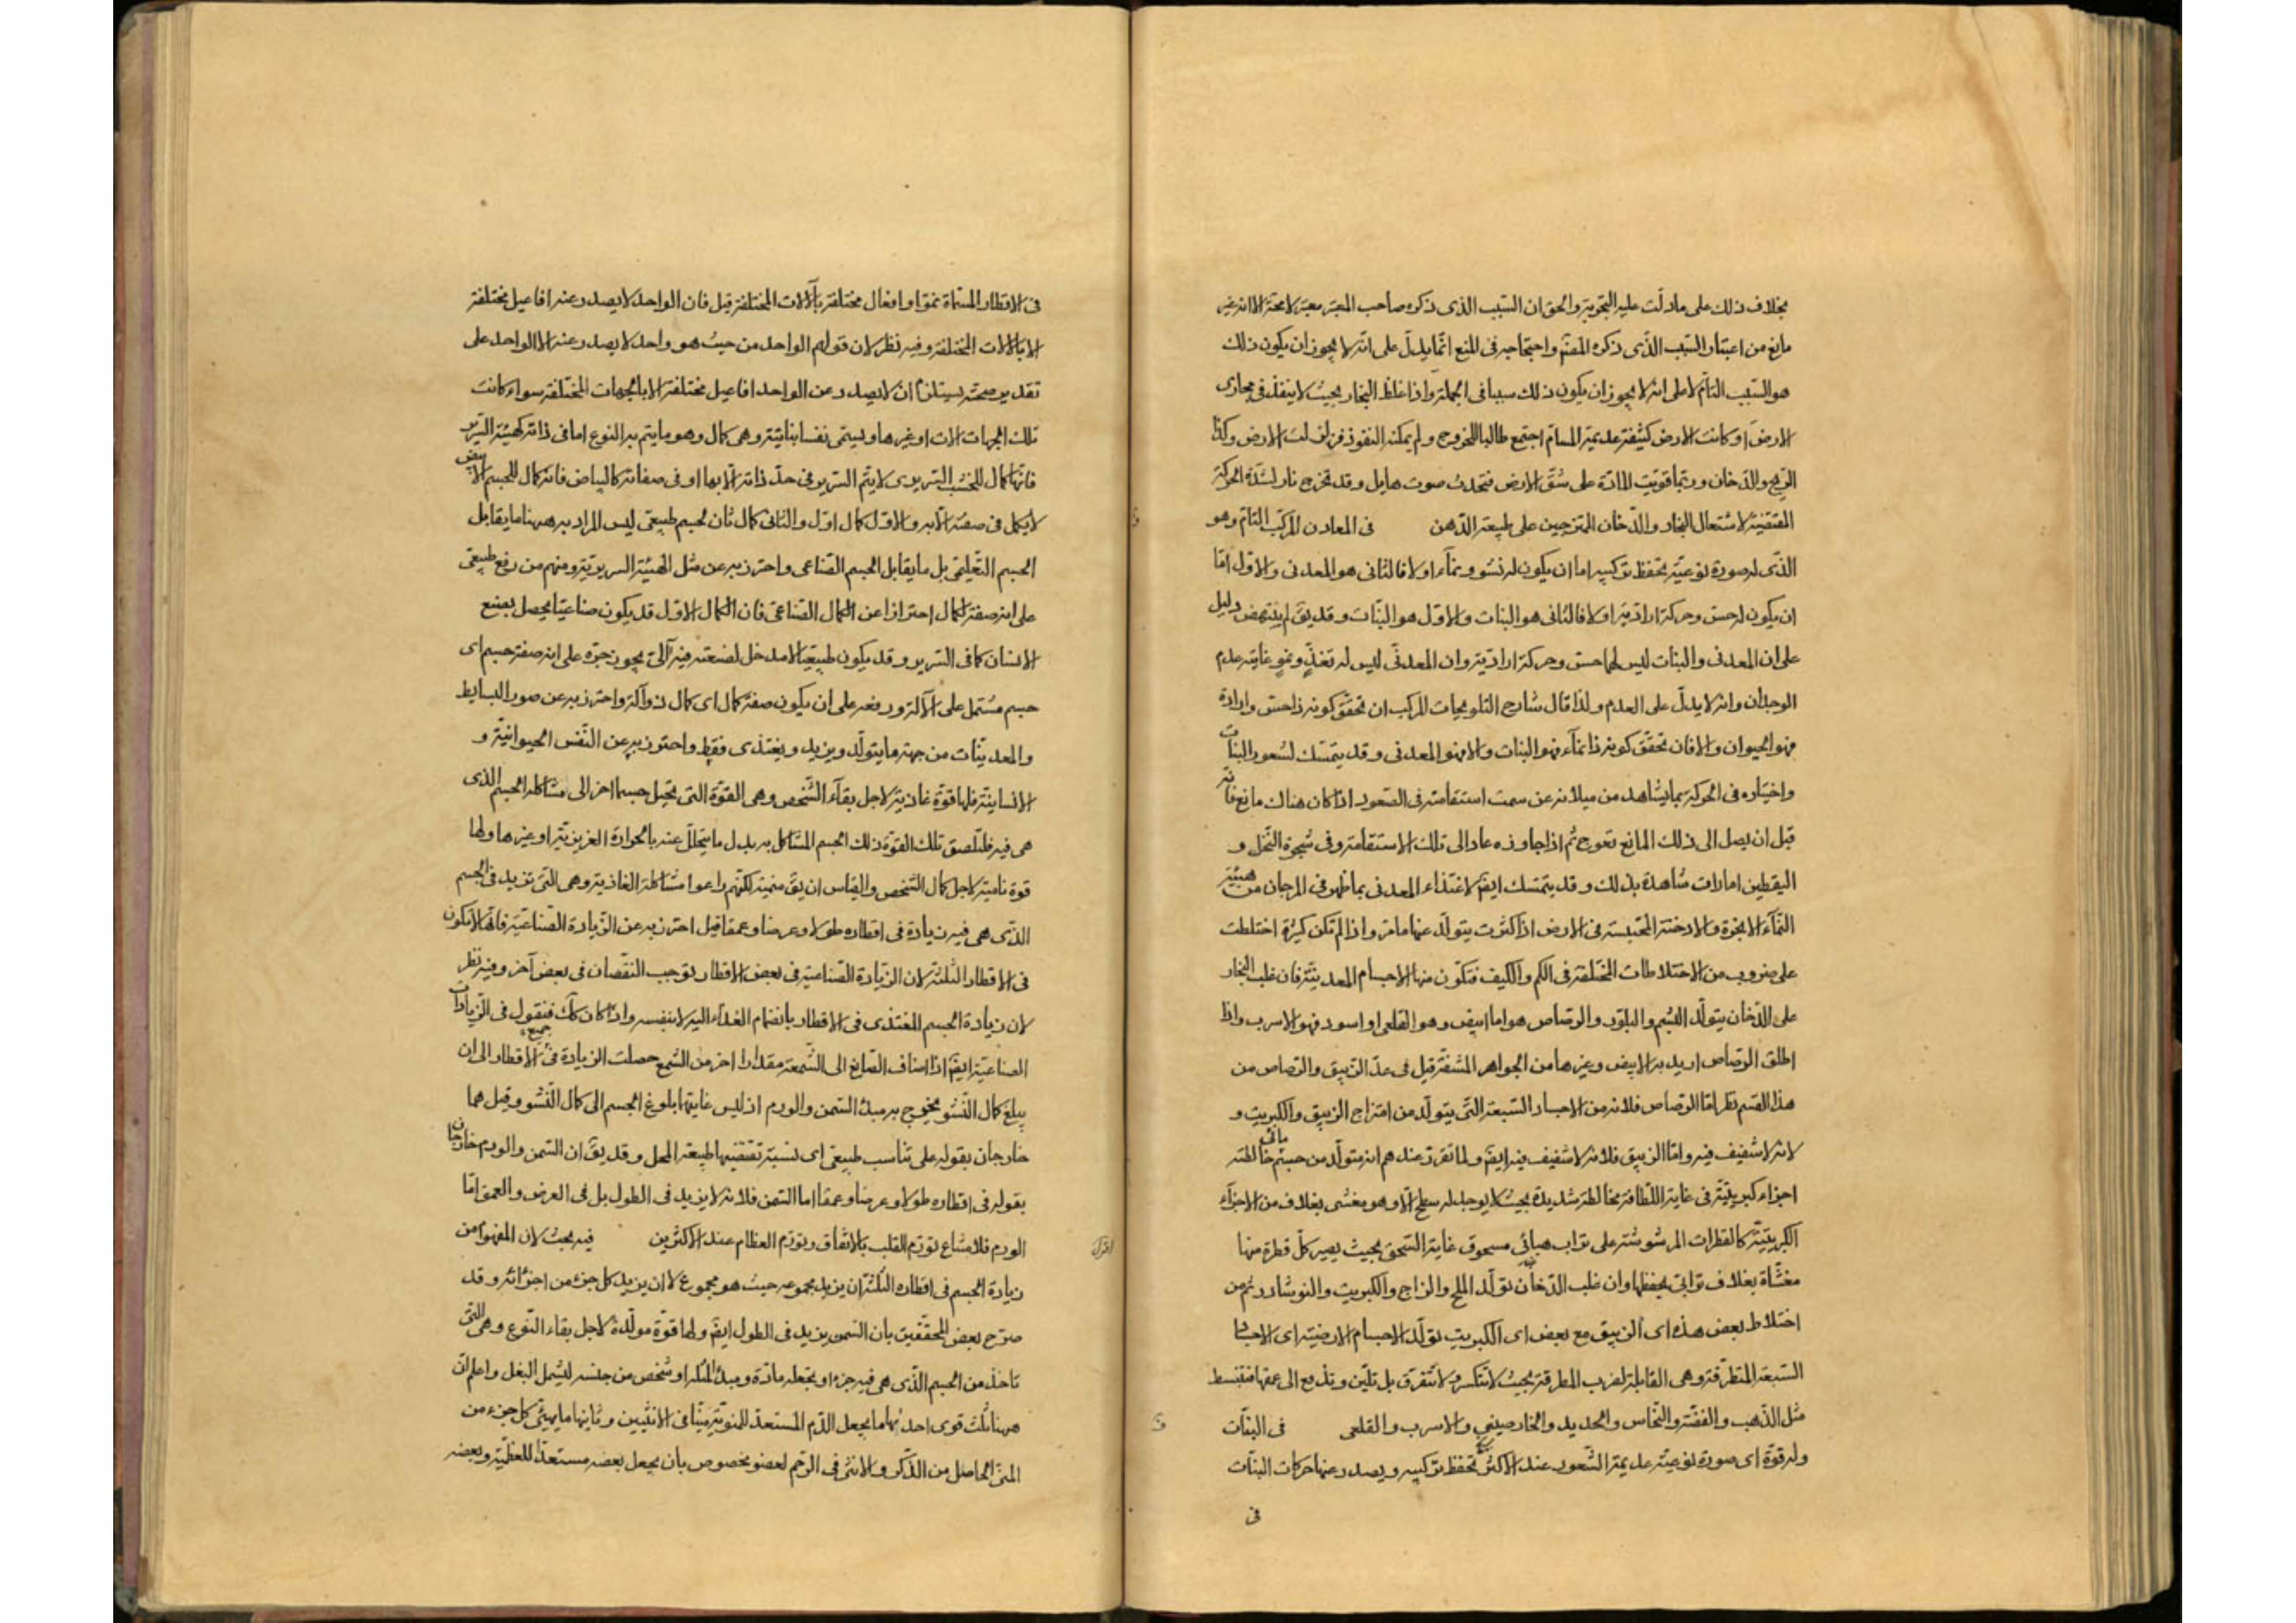 بخلاف ذلك على ما دلت عليه التجربة والحق ان السبب الذى ذكره صاحب المعتبر معتبر لا محة الا انه غير
مانع من اعتبار السبب الذى ذكره المصنف واحتجاجه فى المنع انما يدل على انه لا يجوز ان يكون ذلك
هو السبب التام لا على انه لا يجوز ان يكون ذلك سببا فى الجملة واذا غلظ البخار بحيث لا ينفذ فى مجارى
الارض او كانت الارض كثيفة عديمة المسام اجتمع طالبا للخروج ولم يمكنه النفوذ فزلزلت الارض وكذا
الريح والدخان وربما قويت المادة على شق الارض فتحدث صوت هايل وقد تخرج نار لشدة الحركة
المقتضية لاشتعال البخار والدخان الممتزجين على طبيعة الدهن فى المعادن المركب التام وهو
الذى له صورة نوعية يحفظ تركيبه اما ان يكون له نشو ونماء او لا فالثانى هو المعدنى والاول اما
ان يكون له حس وحركة ارادية او لا فالثانى هو النبات والاول هو النبات وقد يق لم ينتهض دليل
على ان المعدنى والنبات ليس لهما حس وحركة ارادية وان المعدنى ليس له تغذ ونمو غايته عدم
الوجدان وانه لا يدل على العدم ولذا قال شارح التلويحات المركب ان تحقق كونه ذا حس وارادة
فهو الحيوان والا فان تحقق كونه ذا نماء فهو النبات والا فهو المعدنى وقد يتمسك لشعور النبات
واختياره فى الحركة بما يشاهد من ميلانه عن سمت استقامته فى الصعود اذا كان هناك مانع فانه
قبل ان يصل الى ذلك المانع تعوج ثم اذا جاوزه عاد الى تلك الاستقامة وفى شجرة النخل و
اليقطين امارات شاهدة بذلك وقد يتمسك ايض لاغتذاء المعدنى بما ظهر فى المرجان من هيئة
النماء الابخرة والادخنة المحتبسة فى الارض اذا كثرت يتولد عنها ما مر واذا لم تكن كثيرة اختلطت
على ضروب من الاختلاطات المختلفة فى الكم والكيف فتكون منها الاجسام المعدنية فان غلب البخار
على الدخان يتولد اليشم والبلور والرصاص هو اما ابيض وهو القلعى او اسود فهو الاسرب واذا
اطلق الرصاص اريد به الابيض وغيرها من الجواهر المشفة قيل فى عد الزيبق والرصاص من
هذا القسم نظر اما الرصاص فلانه من الاجساد السبعة التى يتولد من امتزاج الزيبق والكبريت و
لانه لا شفيف فيه واما الزيبق فلانه لا شفيف فيه ايض ولما تقرر عندهم انه متولد من جسم مائى خالطته
اجزاء كبريتية فى غاية اللطافة مخالطة شديدة بحيث لا يوجد له سطح الا وهو مغشى بغلاف من الاجزاء
الكبريتية كالقطرات المرشوشة على تراب هبائى مسحوق غاية السحق بحيث يصير كل قطرة منها
مغشاة بغلاف ترابى يحفظها وان غلب الدخان تولد الملح والزاج والكبريت والنوشادر ثم من
اختلاط بعض هذه اى الزيبق مع بعض اى الكبريت تولد الاجسام الارضية اى الاجساد
السبعة المتطرقة وهى القابلة لضرب المطرقة بحيث لا تنكسر ولا تتفرق بل تلين وتندفع الى عمقها فتنبسط
مثل الذهب والفضة والنحاس والحديد والخارصينى والاسرب والقلعى فى النبات
وله قوة اى صورة نوعية عديمة الشعور عند الاكثر تحفظ تركيبه ويصدر عنها حركات النبات
فى
فى الاقطار المسماة نموا وافعال مختلفة بآلات المختلفة قيل فان الواحد لا يصدر عنه افاعيل مختلفة
الا بالالات المختلفة وفيه نظر لان قولهم الواحد من حيث هو واحد لا يصدر عنه الا الواحد على
تقدير صحته يستلزم ان لا يصدر عن الواحد افاعيل مختلفة الا بالجهات المختلفة سواء كانت
تلك الجهات الات او غيرها ويسمى نفسا نباتية وهى كمال وهو ما يتم به النوع اما فى ذاته كهيئة السرير
فانها كمال للخشب السريرى لا يتم السرير فى حد ذاته الا بها او فى صفاته كالبياض فانه كمال للجسم الابيض
لا يكمل فى صفته الا به والاول كمال اول والثانى كمال ثان لجسم طبيعى ليس المراد به ههنا ما يقابل
الجسم التعليمى بل ما يقابل الجسم الصناعى واحترز به عن مثل الهيئة السريرية ومنهم من رفع طبيعى
على انه صفة لكمال احترازا عن الكمال الصناعى فان الكمال الاول قد يكون صناعيا يحصل بصنع
الانسان كما فى السرير وقد يكون طبيعيا لا مدخل لصنعته فيه آلى يجوز جره على انه صفة جسم اى
جسم مشتمل على الآلة ورفعه على ان يكون صفة كمال اى كمال ذو آلة واحترز به عن صور البسايط
والمعدنيات من جهة ما يتولد ويزيد ويغتذى فقط واحترز به عن النفس الحيوانية و
الانسانية فلها قوة غاذية لاجل بقاء الشخص وهى القوة التى تحيل جسما اخر الى مشاكلة الجسم الذى
هى فيه فتلصق تلك القوة ذلك الجسم المشاكل به بدل ما يتحلل عنه بالحرارة الغريزية او غيرها ولها
قوة نامية لاجل كمال الشخص والقياس ان يق منمية لكنهم راعوا مشاكلة الغاذية وهى التى تزيد فى الجسم
الذى هى فيه زيادة فى اقطاره طولا وعرضا وعمقا قيل احترز به عن الزيادة الصناعية فانها لا تكون
فى الاقطار الثلثة لان الزيادة الصناعية فى بعض الاقطار توجب النقصان فى بعض آخر وفيه نظر
لان زيادة الجسم المغتذى فى الاقطار بانضمام الغذاء اليه لا بنفسه واذا كان كك فنقول فى الزيادات
الصناعية ايض اذا اضاف الصانع الى الشمعة مقدارا اخر من الشمع حصلت الزيادة فى جميع الاقطار الى ان
يبلغ كمال النشو يخرج به مبدء السمن والورم اذ ليس غايتها بلوغ الجسم الى كمال النشو وقيل هما
خارجان بقوله على تناسب طبيعى اى نسبة تقتضيها طبيعة المحل وقد يق ان السمن والورم خارجان
بقوله فى اقطاره طولا وعرضا وعمقا اما السمن فلانه لا يزيد فى الطول بل فى العرض والعمق اما
الورم فلامتناع تورم القلب بالاتفاق وتورم العظام عند الاكثرين فيه بحث لان المفهوم من
زيادة الجسم فى اقطاره الثلثة ان يزيد بمجموعه حيث هو مجموع لا ان يزيد كل جزء من اجزائه وقد
صرح بعض المحققين بان السمن يزيد فى الطول ايض ولها قوة مولدة لاجل بقاء النوع وهى التى
تاخذ من الجسم الذى هى فيه جزءا وتجعله مادة ومبدء لمثله او شخص من جنسه ليشمل البغل واعلم ان
ههنا ثلث قوى احدٰها ما يجعل الدم المستعد للمنوية منيا فى الانثيين وثانيها ما يهيئ كل جزء من
المنى الحاصل من الذكر والانثى فى الرحم لعضو مخصوص بان يجعل بعضه مستعدا للعظمية وبعضه